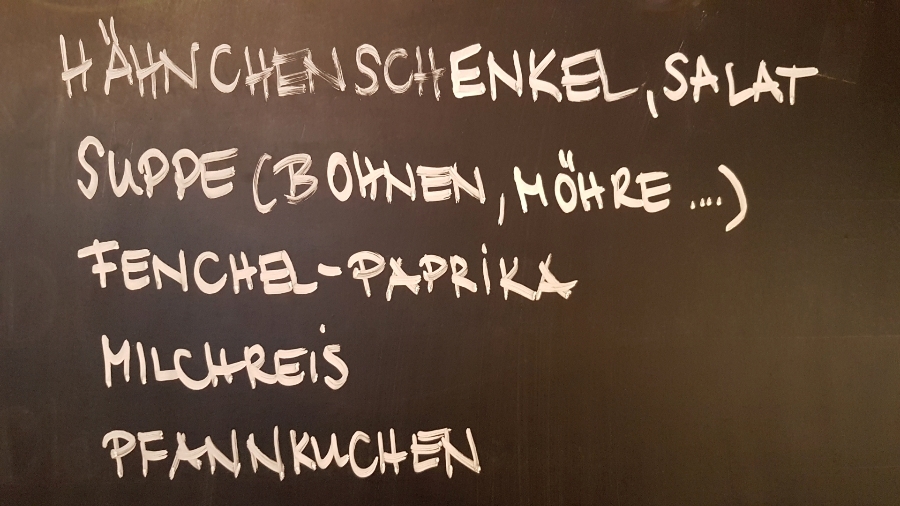 HÄHNCHENSCHENKEL, SALAT
SUPPE (BOHNEN, MÖHRE ....)
FENCHEL-PAPRIKA
MILCHREIS
PFANNKUCHEN